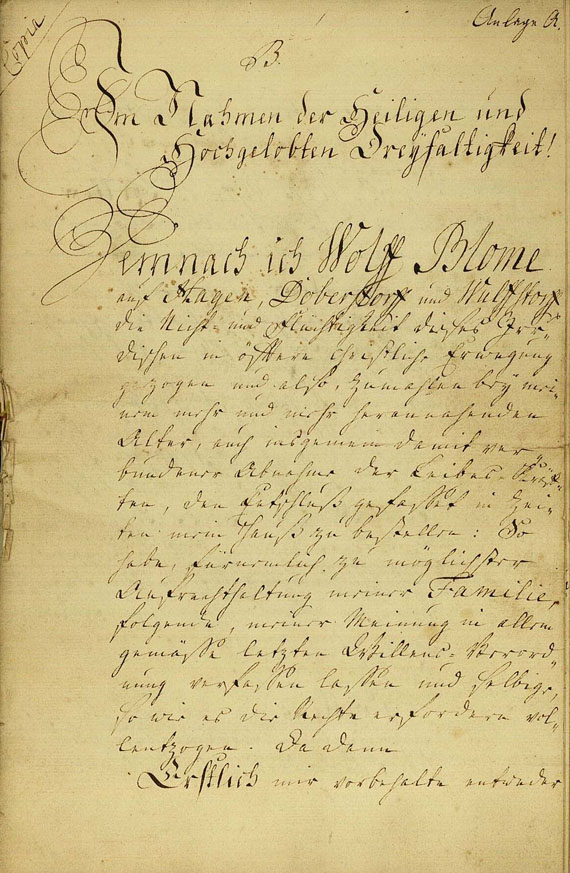 Copia
Anlage A.
B.
Im Nahmen der Heiligen und
Hochgelobten Dreyfaltigkeit!
Demnach ich Wolff Blome
auf Hagen, Dobersdorff und Wulffstorff
die Nicht- und Flüchtigkeit dieses Irr-
dischen in öfttere Christliche Erwegung
gezogen und also, zumahlen bey mei-
nem mehr und mehr herannahenden
Alter, auch insgemein damit ver-
bundener Abnahme der Leibes-Kräff-
ten, den Entschluß gefasset in Zei-
ten mein Hauß zu bestellen: So
habe, fürnemlich zu möglichster
Aufrechthaltung meiner Familie,
folgende, meiner Meinung in allem
gemässe letzten Willens-Verord-
nung verfassen lassen und selbige,
so wie es die Rechte erfordern vol-
lentzogen. Da denn
Erstlich mir vorbehalte entweder